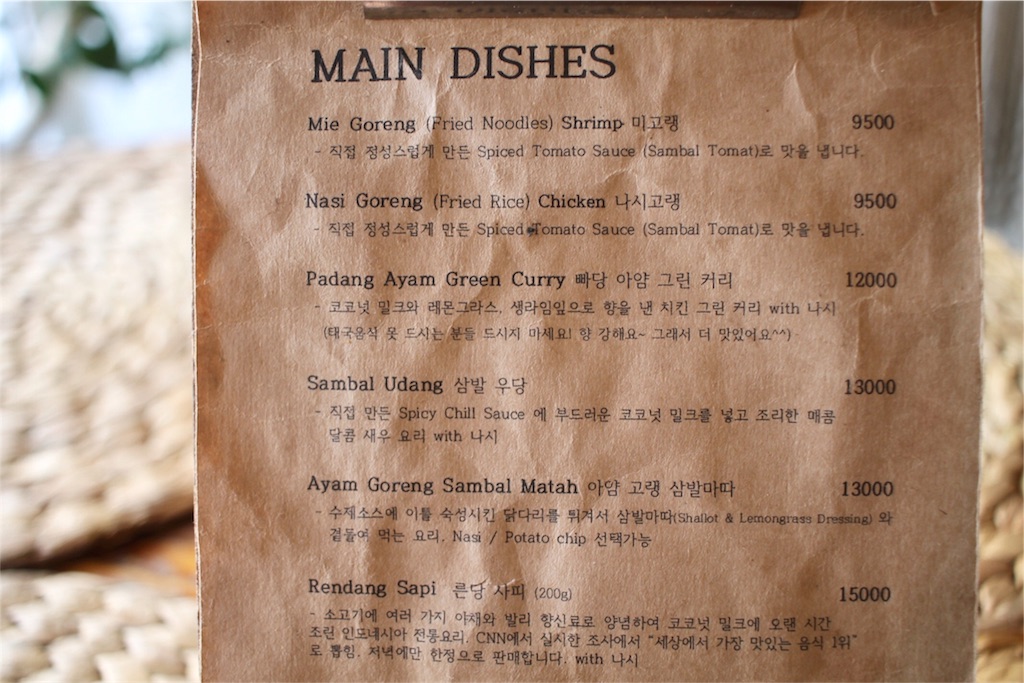 MAIN DISHES
Mie Goreng (Fried Noodles) Shrimp 미고랭 9500
- 직접 정성스럽게 만든 Spiced Tomato Sauce (Sambal Tomat)로 맛을 냅니다.
Nasi Goreng (Fried Rice) Chicken 나시고랭 9500
- 직접 정성스럽게 만든 Spiced Tomato Sauce (Sambal Tomat)로 맛을 냅니다.
Padang Ayam Green Curry 빠당 아얌 그린 커리 12000
- 코코넛 밀크와 레몬그라스, 생라임잎으로 향을 낸 치킨 그린 커리 with 나시
(태국음식 못 드시는 분들 드시지 마세요! 향 강해요~ 그래서 더 맛있어요^^)
Sambal Udang 삼발 우당 13000
- 직접 만든 Spicy Chill Sauce 에 부드러운 코코넛 밀크를 넣고 조리한 매콤
달콤 새우 요리 with 나시
Ayam Goreng Sambal Matah 아얌 고랭 삼발마따 13000
- 수제소스에 이틀 숙성시킨 닭다리를 튀겨서 삼발마따(Shallot & Lemongrass Dressing) 와
곁들여 먹는 요리. Nasi / Potato chip 선택가능
Rendang Sapi 른당 사피 (200g) 15000
- 소고기에 여러 가지 야채와 발리 향신료로 양념하여 코코넛 밀크에 오랜 시간
조린 인도네시아 전통요리. CNN에서 실시한 조사에서 "세상에서 가장 맛있는 음식 1위"
로 뽑힘. 저녁에만 한정으로 판매합니다. with 나시